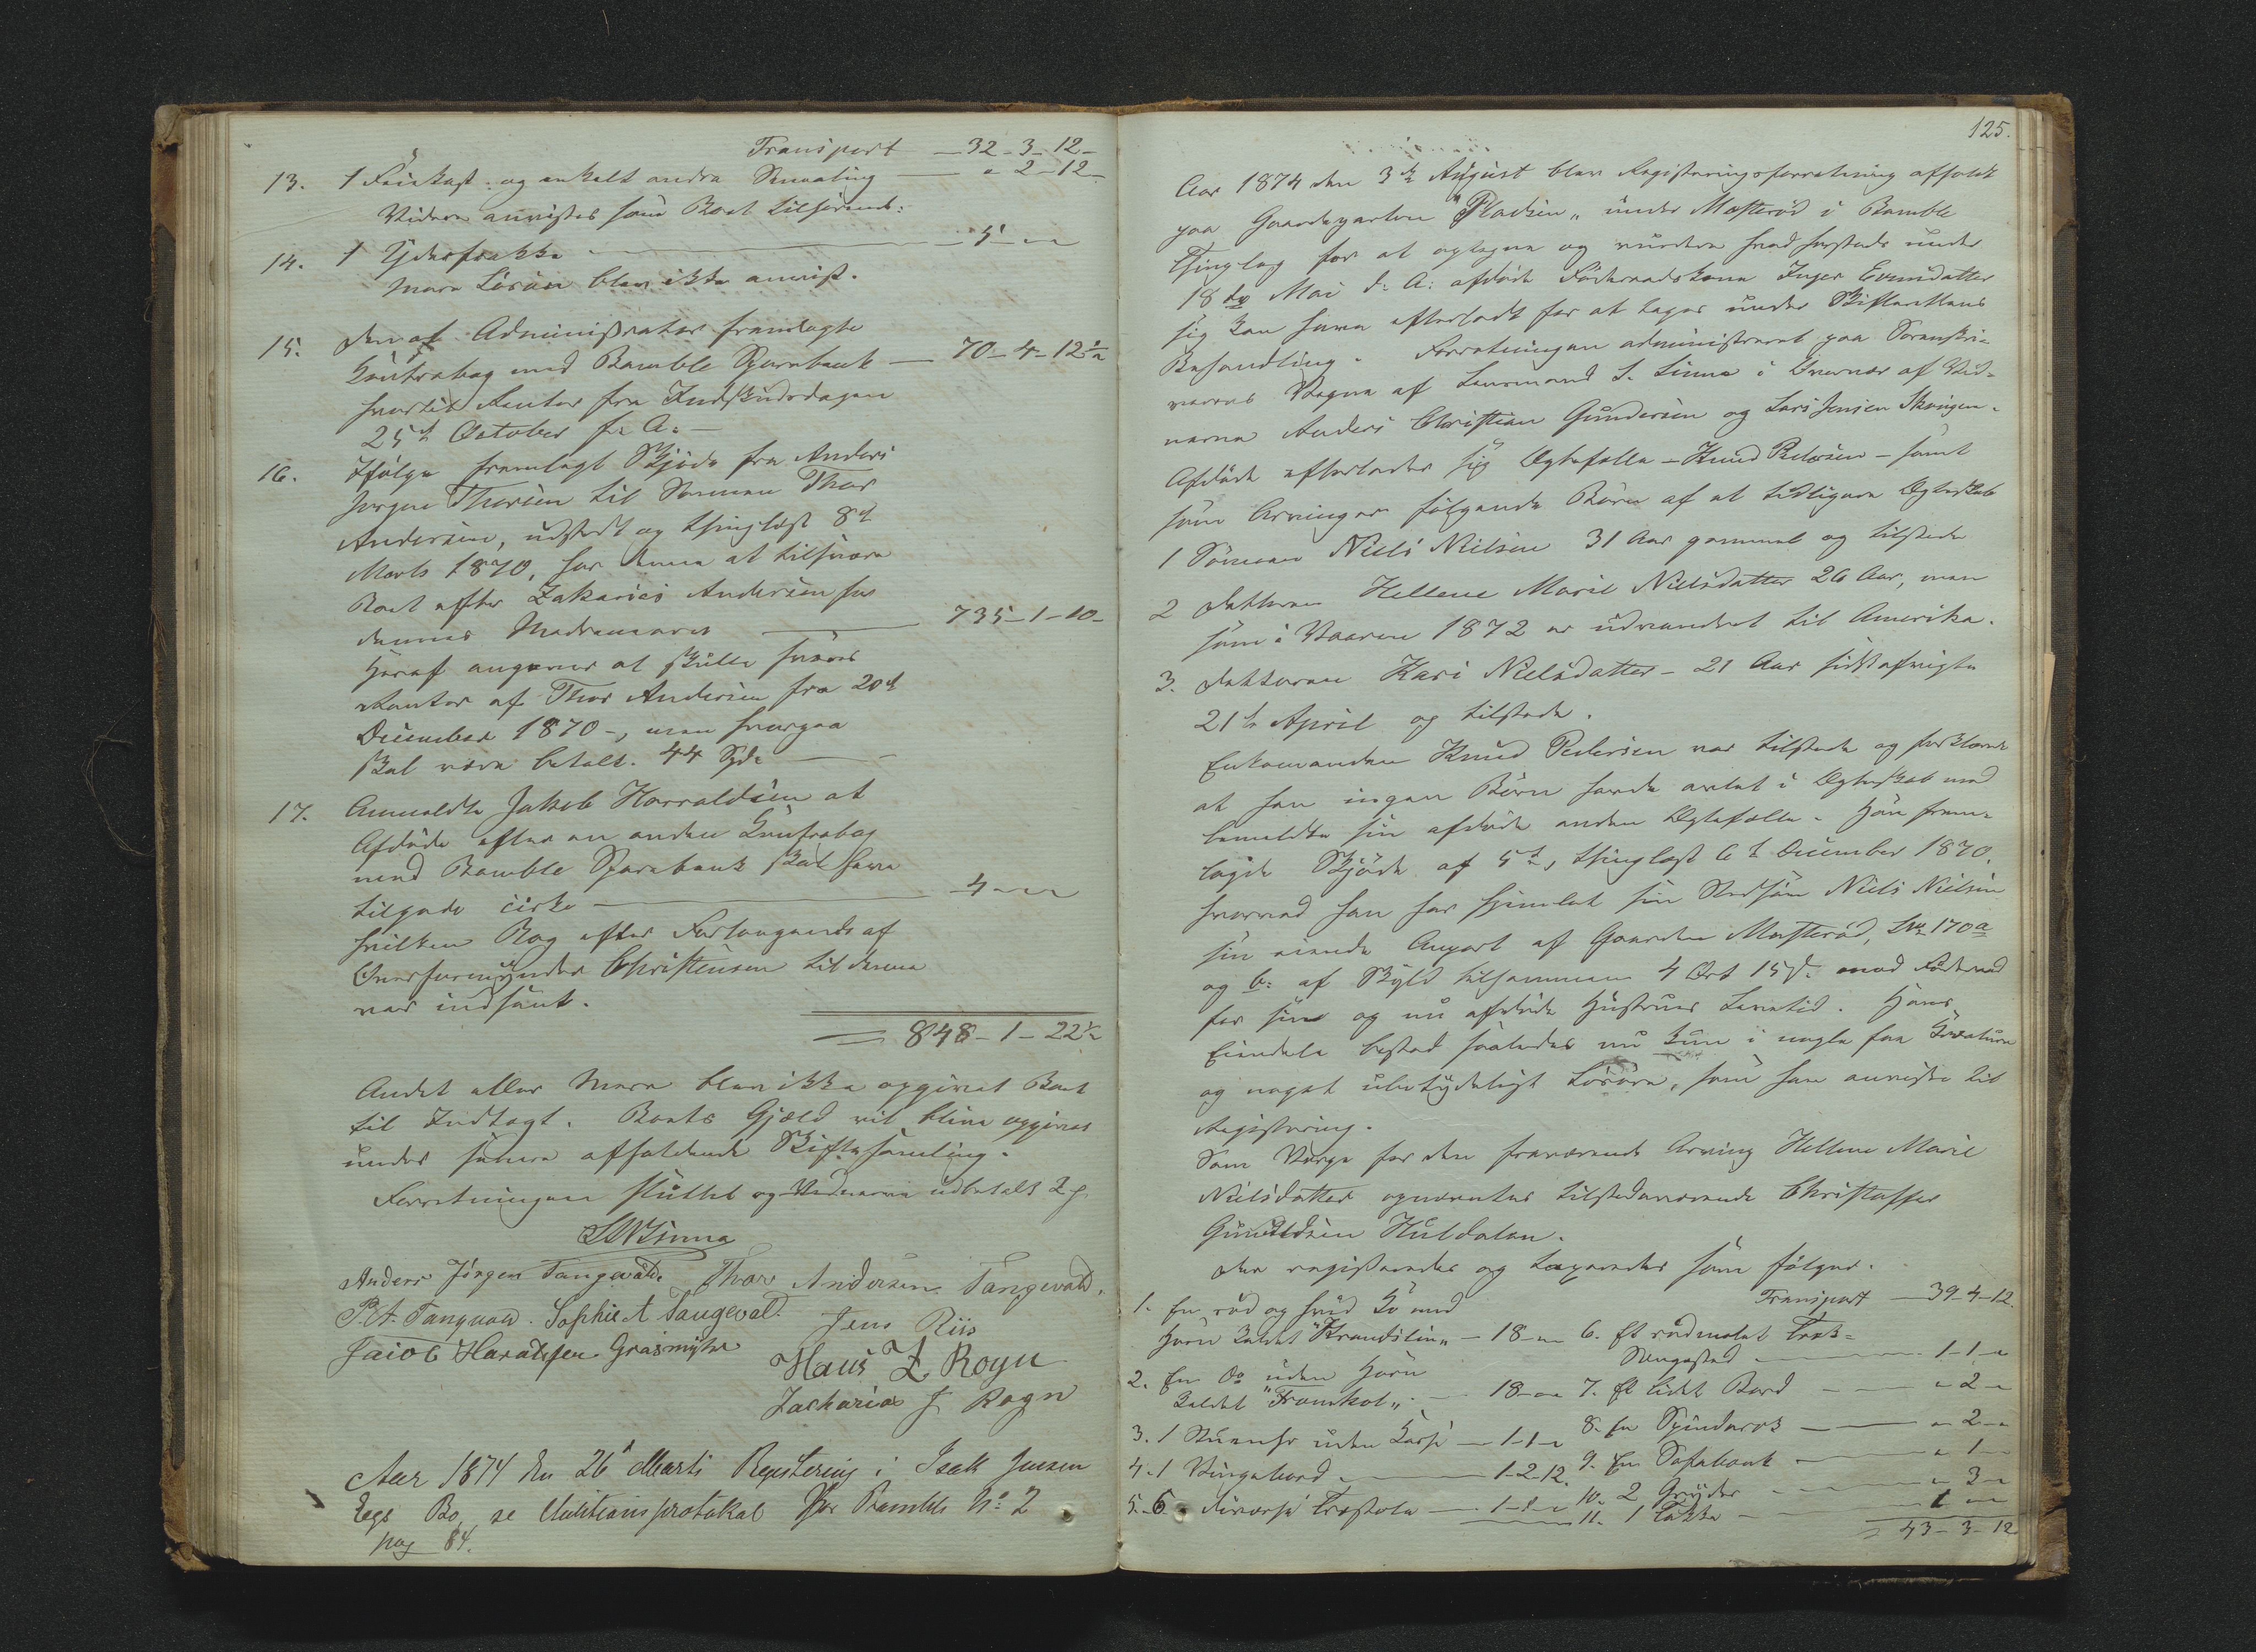 Transport — 32-3-12-
13. 1 Feiekost og enkelt andre Smaating — " 2-12-
Videre anvistes som Boet tilhørende:
14. 1 Yderfrakke — 5 - " "
Mere Løsøre blev ikke anvist.
15. Den af Administrator fremlagte
Contrabog med Bamble Sparebank — 70-4-12½
hvortil Renter fra Indskudsdagen
25de October f. A. —
16. Ifølge fremlagt Skjøde fra Anders
Jørgen Thorsen til Sønnen Thor
Andersen, udstedt og thinglæst 8de
Marts 1870, har denne at tilsvare
Boet efter Zakarias Andersen for
dennes Mødrenearv — 735-1-10-
Heraf angives at skulle svares
Renter af Thor Andersen fra 20de
December 1870 -, men hvorpaa
skal være betalt. 44 Spd. —
17. Anmeldte Jakob Harraldsen at
Afdøde efter en anden Contrabog
med Bamble Sparebank skal have
tilgode cirka — 4 - " "
hvilken Bog efter Forlangende af
Overformynder Christensen til denne
var indsendt.
= 848-1-22½
Andet eller mere blev ikke opgivet Boet
til Indtægt. Boets Gjæld vil blive opgivet
under senere afholdende Skiftesamling.
Forretningen sluttet og Vidnerne udbetalt
Linna
Anders Jørgen Tangevald. Thor Andersen Tangevald.
P. A. Tangvald. Sophie A Tangevald. Jens Riis
Jaicob Haraldsen Grasmyhr
Hans Z. Rogn
Zacharias J Rogn
Aar 1874 den 26 Marts Registering i Isak Jensen
Eegs Bo, se Auktionsprotokol for Bamble No 2
pag 84.
125.
Aar 1874 den 3de August blev Registreringsforretning afholdt
paa Gaardeparten "Pladsen" under Mosterød i Bamble
Thinglag for at optegne og vurdere hvad herstede under
18de Mai d. A. afdøde Føderaadskone Inger Evensdatter
sig kan have efterladt for at tages under Skifterettens
Behandling. Forretningen administreret paa Sorenskri-
verens Vegne af Lensmand S. Linna i Overvær af Vid-
nerne Anders Christian Gundersen og Lars Jensen Skougen.
Afdøde efterlader sig Ægtefælle - Knud Pedersen - samt
som Arvinger følgende Børn af et tidligere Ægteskab
1 Sønnen Niels Nielsen 31 Aar gammel og tilstede
2 Datteren Hellene Marie Nielsdatter 26 Aar, men
som i Vaaren 1872 er udvandret til Amerika.
3. Datteren Kari Nielsdatter - 21 Aar sidstafvigte
21de April og tilstede.
Enkemanden Knud Pedersen var tilstede og forklarede
at han ingen Børn havde avlet i Ægteskab med
bemeldte sin afdøde anden Ægtefælle. Han frem-
lagde Skjøde af 5te, thinglæst 6te December 1870,
hvorved han har hjemlet sin Stedsøn Niels Nielsen
sin eiende Anpart af Gaarden Mosterød, Lno 170 a
og b: af Skyld tilsammen 4 Ort 15 s. mod Føderaad
for sin og nu afdøde Hustrues Levetid. Hans
Eiendele bestod saaledes nu kun i nogle faa Kreature
og noget ubetydeligt Løsøre, som han anviste til
Registrering.
Som Værge for den fraværende Arving Hellene Marie
Nielsdatter opnævntes tilstedeværende Christoffer
Gundersen Huldalen.
Der registreredes og taxeredes som følger.
1. En rød og hvid Ko med
Horn kaldet "Krandslin" — 18 - " "
2. En Do uden Horn
kaldet "Framkol" — 18 - " "
3. 1 Stueuhr uden Kasse — 1-1-"
4. 1 Vingebord — 1-2-12.
5. 6 diverse Træstole — 1-1-"
Transport — 39-4-12.
6. Et rødmalet Træ-
Sengested — 1-1-"
7. Et lidet Bord — " 2 - "
8. En Spinderok — " 2 - "
9. En Sofabænk — " 1 - "
10. 2 Gryder — " 3 - "
11. 1 Takke — 1 - "
= 43-3-12